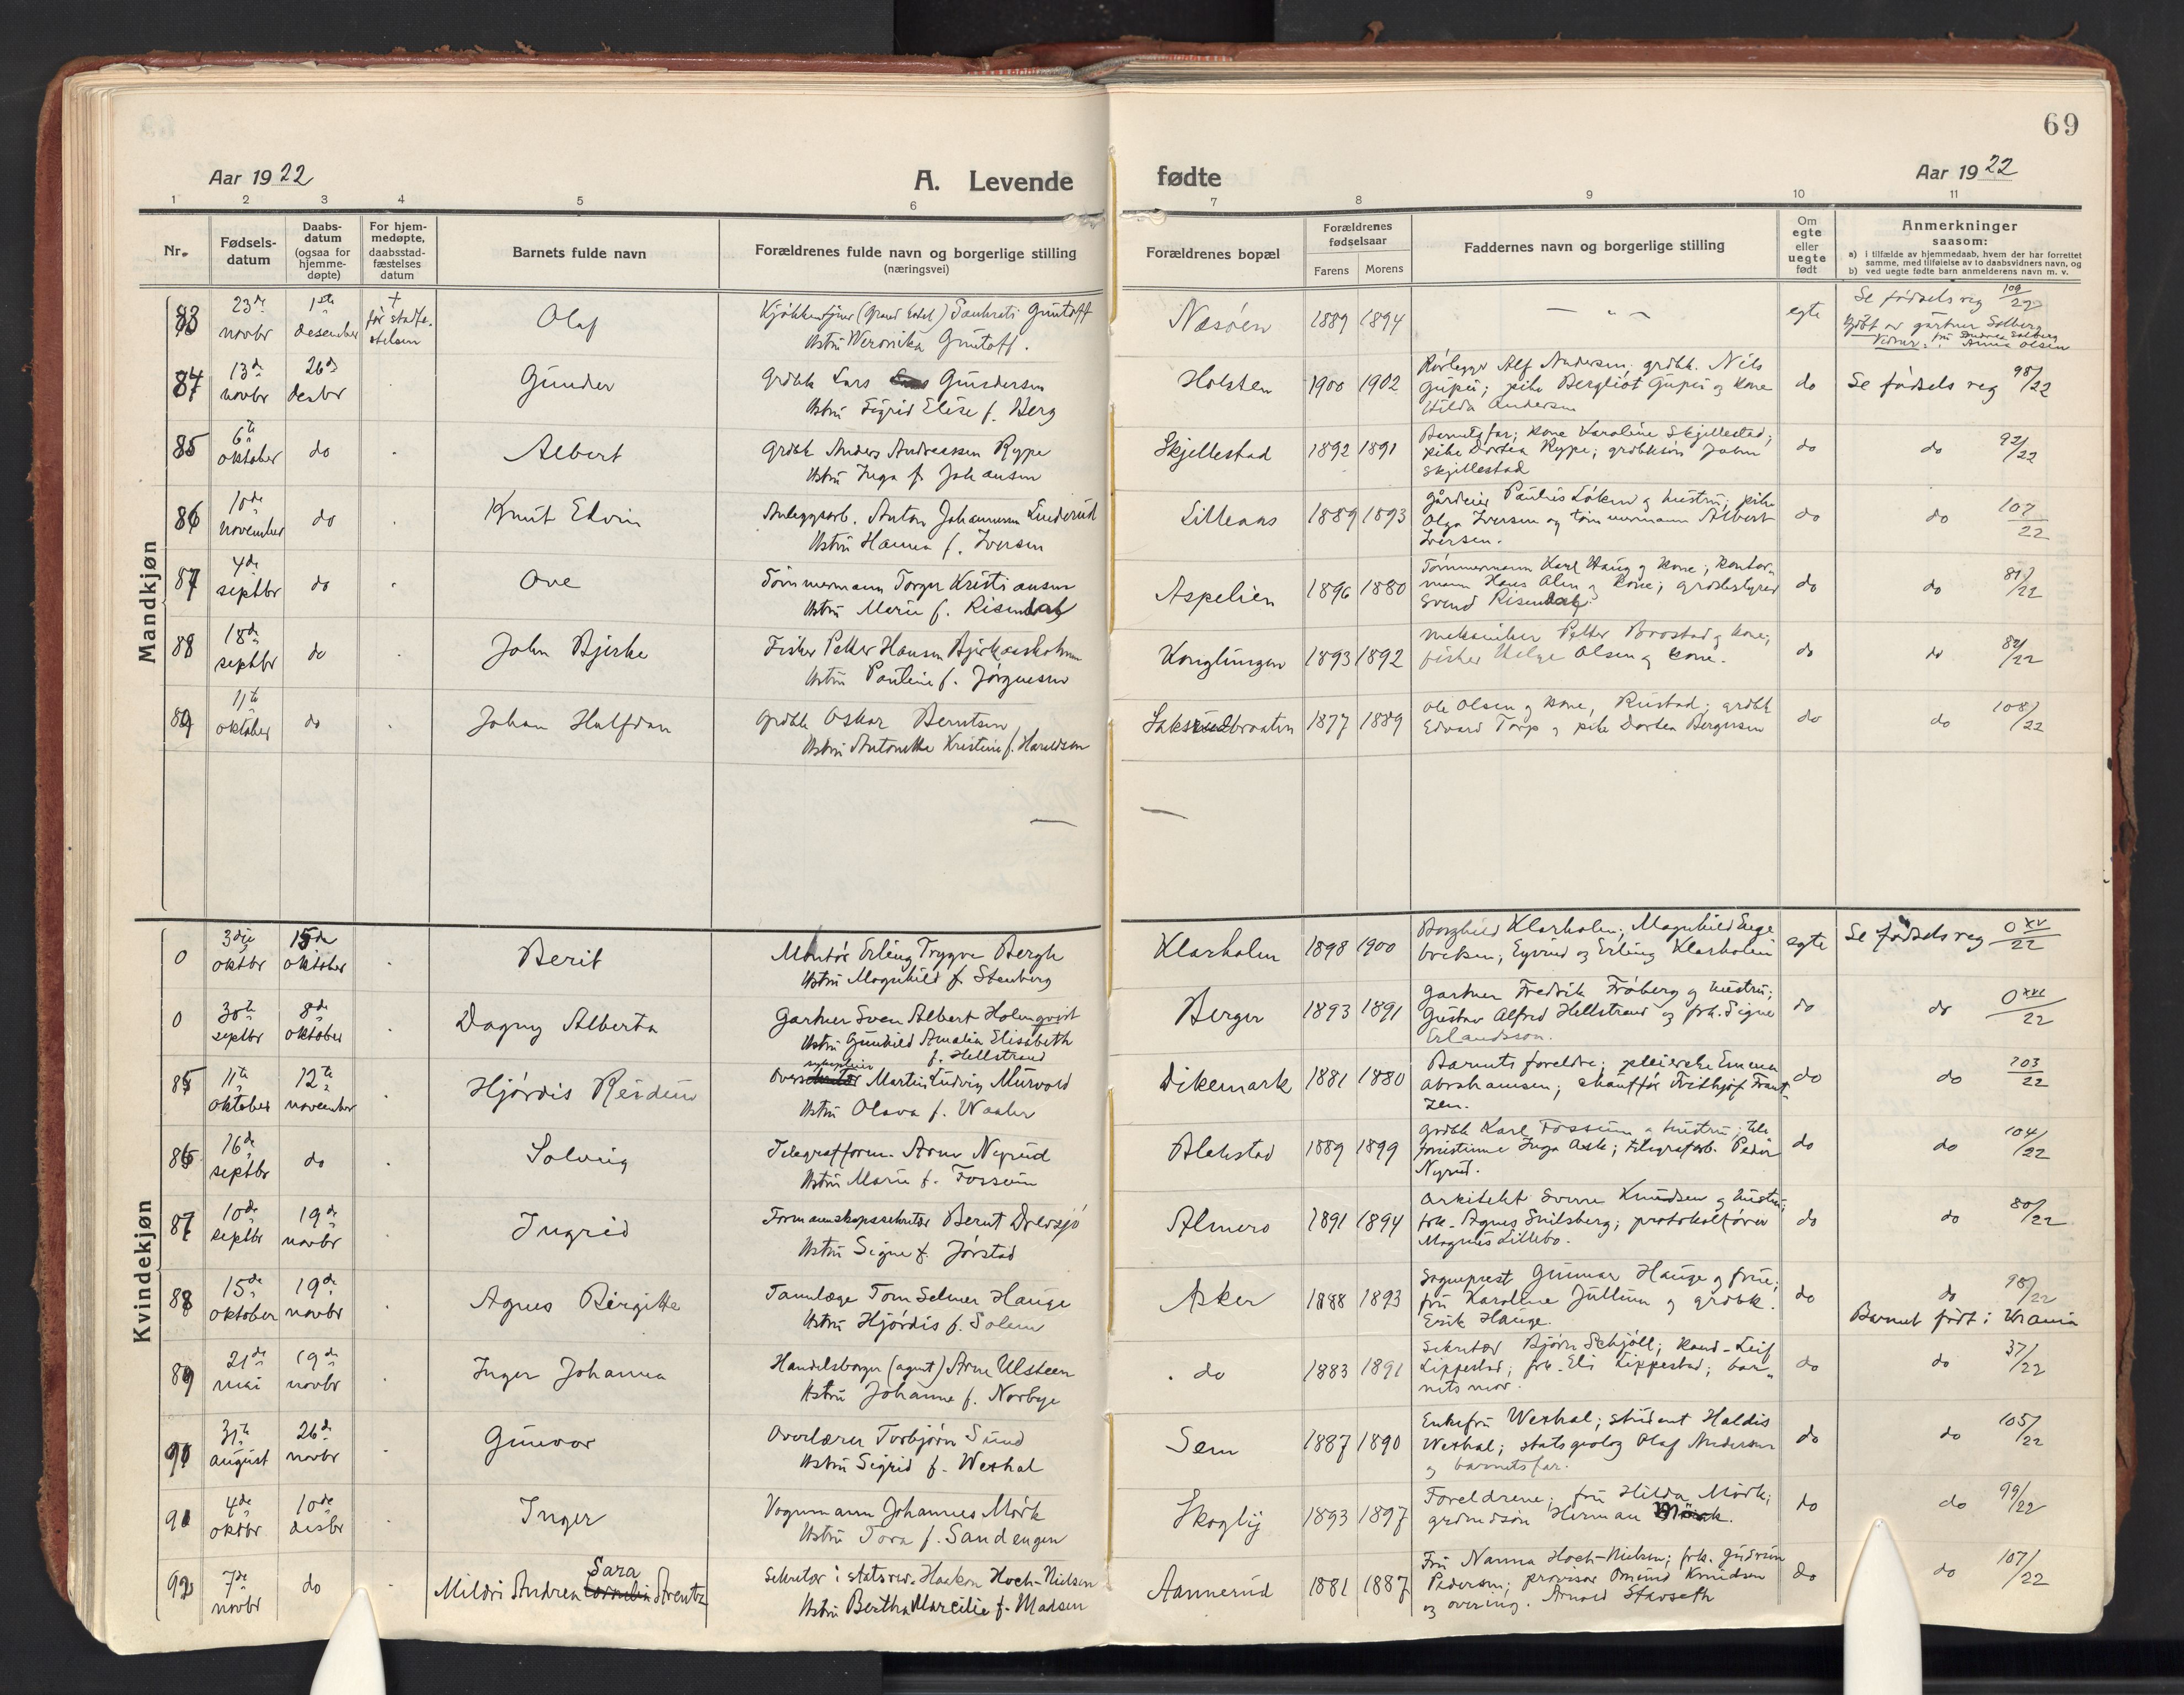 69
Aar 1922
A. Levende fødte
Aar 1922
1 2 3 4 5 6 7 8 9 10 11
Nr.
Fødsels-
datum
Daabs-
datum
(ogsaa for
hjemme-
døpte)
For hjem-
medøpte,
daabsstad-
fæstelses
datum
Barnets fulde navn
Forældrenes fulde navn og borgerlige stilling
(næringsvei)
Forældrenes bopæl
Forældrenes
fødselsaar
Farens Morens
Faddernes navn og borgerlige stilling
Om
egte
eller
uegte
født
Anmerkninger
saasom:
a) i tilfælde av hjemmedaab, hvem der har forrettet
samme, med tilføielse av to daabsvidners navn, og
b) ved uegte fødte barn anmelderens navn m. v.
Mandkjøn
83
23de novbr
1ste desember
† før stadfestelsen
Olaf
(Grand Hotel) Pankrati Guntoff
Hstru Weronika Guntoff.
Nesöen
1889 1894
egte
Se fødsels reg 109/22
døbt av gartner Solberg
Vidner: fru Solberg
Anna Olsen
84
13de novbr
26de desbr
Gunder
Grdbk Lars Gundersen
Hstru Sigrid Elise f. Berg
Holsten
1900 1902
Rörlegger Alf Andersen; grdbk. Nils
Gupu; pike Bergliot Gupu og kone
Hilda Andersen
do
Se fødsels reg 98/22
85
6te oktober
do
Albert
Grdbk Anders Andreassen Rype
Hstru Inga f. Johansen
Skjellestad
1892 1891
Barnets far; kone Karoline Skjellestad;
pike Dortea Rype; grdbksön John
Skjellestad
do
do 92/22
86
10de november
do
Knut Edvin
Anleggsarb. Anton Johannesen Linderud
Hstru Hanna f. Iversen
Lilleaas
1889 1893
Gårdeier Paulus Löken og hustru; pike
Olga Iversen og tömmermann Albert
Iversen.
do
do 107/22
87
4de septbr
do
Ove
Tömmermann Torger Kristiansen
Hstru Merie f. Risendal
Aspelien
1896 1880
Tömmermann Karl Haug og kone; kontor-
mann Hans Alm og kone; grdbestyrer
Svend Risendal.
do
do 81/22
88
18de septbr
do
John Bjerke
Fisker Petter Hansen Bjerkaasholmen
Hstru Pauline f. Jörgensen
Konglungen
1893 1892
Mekaniker Petter Brostad og kone;
fisker Helge Olsen og kone.
do
do 82/22
89
11te oktober
do
Johan Halfdan
Grdbk Oskar Berntsen
Hstru Antonette Kristine f. Haraldsen
Saksrudbraaten
1877 1889
Ole Olsen og kone, Rustad; grdbk
Edvard Torp og pike Dortea Bergersen
do
do 108/22
Kvindekjøn
0
3die oktbr
15de oktober
Berit
Montör Erling Trygve Bergh
Hstru Magnhild f. Stenberg
Klarholm
1898 1900
Borghild Klarholm; Magnhild Inge-
brektsen; Eyvind og Erling Klarholm
egte
Se fødsels reg 0 xv/22
0
30te septbr
8de oktober
Dagny Alberta
Gartner Sven Albert Holmqvist
Hstru Gunhild Amalia Elisabeth
f. Hellstrand
Berger
1893 1891
Gartner Fredrik Fröberg og hustru;
Gustav Alfred Hellstrand og frk. Signe
Erlandsson.
do
do 0 xvi/22
85
11te oktober
12te november
Hjördis Reidun
Martin Ludvig Murvold
Hstru Olava f. Waaler
Dikemark
1881 1880
Barnets foreldre; pleierske Emma
Abrahamsen; chauffør Frithjof Frant-
zen.
do
do 103/22
86
16de septbr
do
Solveig
Telegrafform. Arne Nyrud
Hstru Marie f. Fossum
Blekstad
1889 1899
Grdbk Karl Fossum og hustru; tele-
fonistinne Inga Ask; telegrafarb. Peder
Nyrud.
do
do 104/22
87
10de septbr
19de novbr
Ingrid
Formannskapssekretær Bernt Drevsjö
Hstru Signe f. Jörstad
Almero
1891 1894
Arkitekt Sverre Knudsen og hustru;
frk. Agnes Snilsberg; protokolförer
Magnus Lillebo.
do
do 80/22
88
15de oktober
19de novbr
Agnes Birgitte
Tannlæge Tom Selmer Hauge
Hstru Hjördis f. Solem
Asker
1888 1893
Sogneprest Gunnar Hauge og frue;
fru Karoline Jullum og grdbk.
Erik Hauge.
do
do 95/22
Barnet født i Urania
89
21de mai
19de novbr
Inger Johanna
Handelsborger (agent) Arne Ulsteen
Hstru Johanne f. Norbye
do
1883 1891
Sekretær Björn Schjöll; kand. Leif
Lippestad; frk. Eli Lippestad; bar-
nets mor.
do
do 37/22
90
31te august
26de novbr
Gunvor
Overlærer Torbjörn Sund
Hstru Sigrid f. Wexhal
Sem
1887 1890
Enkefru Wexhal; student Haldis
Wexhal; statsgeolog Olaf Andersen
og barnets far.
do
do 105/22
91
4de oktbr
10de desbr
Inger
Vognmann Johannes Mörk
Hstru Tora f. Sandengen
Skogly
1893 1897
Foreldrene; fru Hilda Mörk;
grdmdsön Herman Mörk.
do
do 99/22
92
7de novbr
do
Mildri Andrea Sara Cornelia Arentz
Sekretær i statsrev. Haakon Hoch-Nielsen
Hstru Bertha Marcilie f. Madsen
Aannerud
1881 1887
Fru Nanna Hoch-Nielsen; frk. Gudrun
Pedersen; provisor Omund Knudsen
og overing. Arnold Stavseth
do
do 107/22